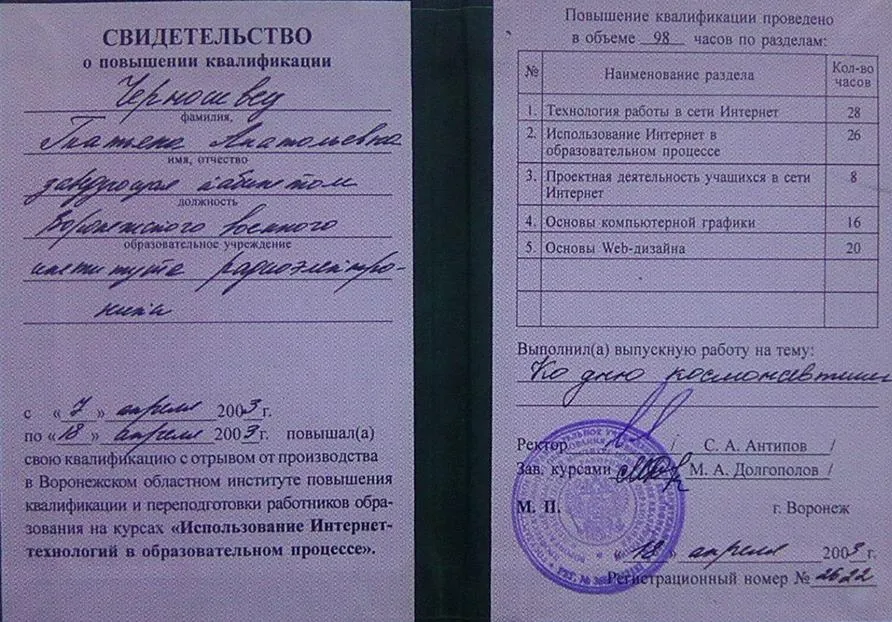 СВИДЕТЕЛЬСТВО
о повышении квалификации
Черношвец
фамилия,
Татьяна Анатольевна
имя, отчество
заведующая кабинетом
должность
Воронежского военного
образовательное учреждение
института радиоэлектро-
ники
с «7» апреля 2003г.
по «18» апреля 2003г. повышал(а)
свою квалификацию с отрывом от производства
в Воронежском областном институте повышения
квалификации и переподготовки работников обра-
зования на курсах «Использование Интернет-
технологий в образовательном процессе».
Повышение квалификации проведено
в объеме 98 часов по разделам:
№ Наименование раздела Кол-во часов
1. Технология работы в сети Интернет 28
2. Использование Интернет в 26
образовательном процессе
3. Проектная деятельность учащихся в сети 8
Интернет
4. Основы компьютерной графики 16
5. Основы Web-дизайна 20
Выполнил(а) выпускную работу на тему:
Ко дню космонавтики
Ректор / С. А. Антипов /
Зав. курсами / М. А. Долгополов /
М. П. г. Воронеж
«18» апреля 2003г.
Регистрационный номер № 2622